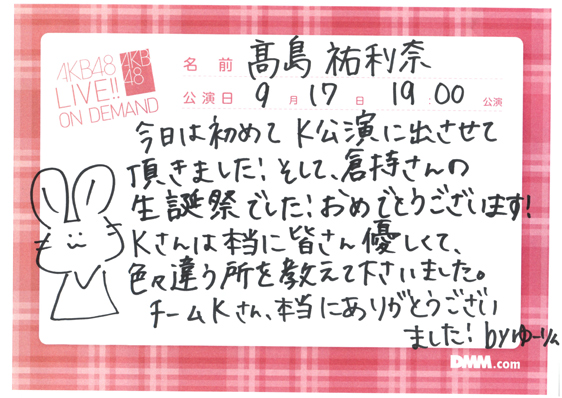 AKB48
LIVE!!
ON DEMAND
AKB
48
名前 髙島 祐利奈
公演日 9月17日 19:00公演
今日は初めてK公演に出させて
頂きました!そして、倉持さんの
生誕祭でした!おめでとうございます!
Kさんは本当に皆さん優しくて、
色々違う所を教えて下さいました。
チームKさん、本当にありがとうござい
ました! byゆーりん
DMM.com